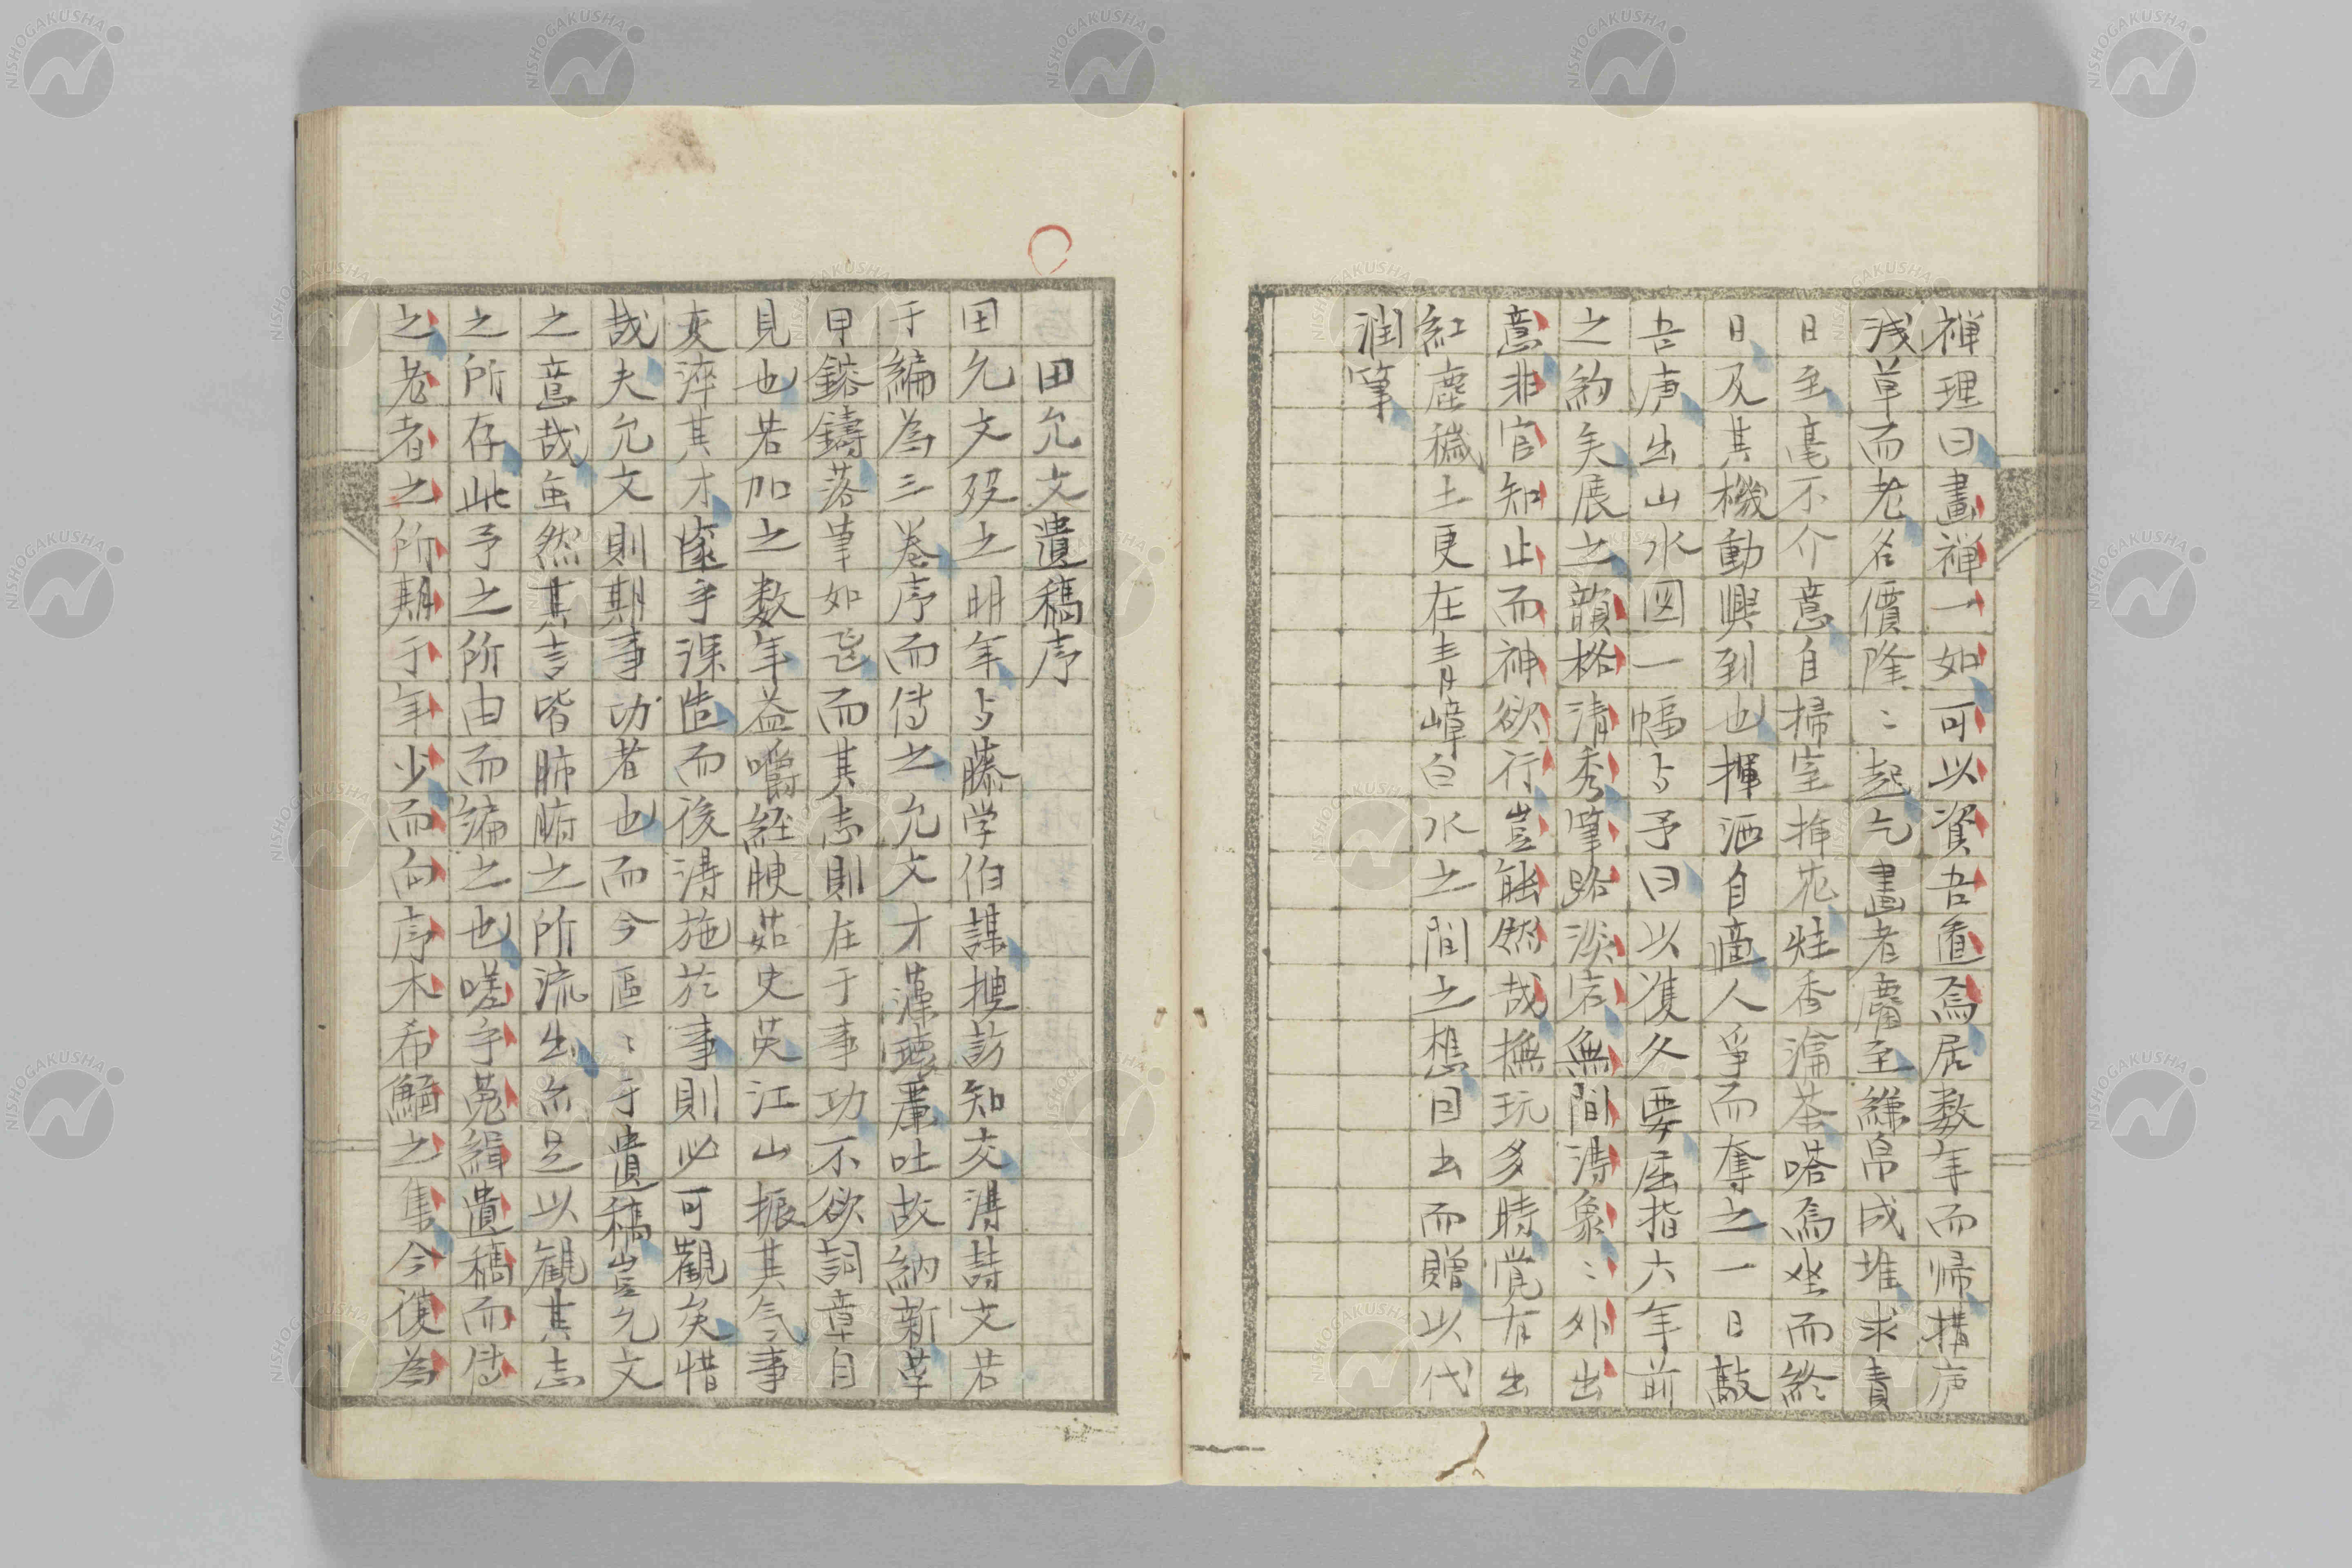 禅理曰畫禅一如可以資吾道焉居数年而帰構庐
浅草而老名價隆〻起乞畫者麕至縑帛成堆求責
日至毫不介意自掃室挿花炷香瀹茶嗒焉坐而終
日及其機動興到也揮洒自適人爭而奪之一日敲
吾庚出山水図一幅与予曰以淂久要屈指六年前
之約矣展之韻格清秀筆路淡宕無間淂象〻外出
意非官知止而神欲行豈能然哉撫玩多時覚有出
紅塵穢土更在青嶂白水之間之想因出而贈以代
潤筆
田允文遺稿序
田允文殁之明年与藤学伯謀捜訪知交淂詩文若
于編為三卷序而傳之允文才藻瓌麗吐故納新莩
甲鎔鑄落筆如飛而其志則在于事功不欲詞章自
見也若加之数年益嚼経腴茹史英江山振其气事
変淬其才邃乎深造而後淂施於事則必可觀矣惜
哉夫允文則期事功者也而今區〻于遺稿豈允文
之意哉虽然其言皆肺腑之所流出而足以観其志
之所存此予之所由而編之也嗟乎蒐緝遺稿而傳
之老者之所期于年少而向序木希鯿之集今復為